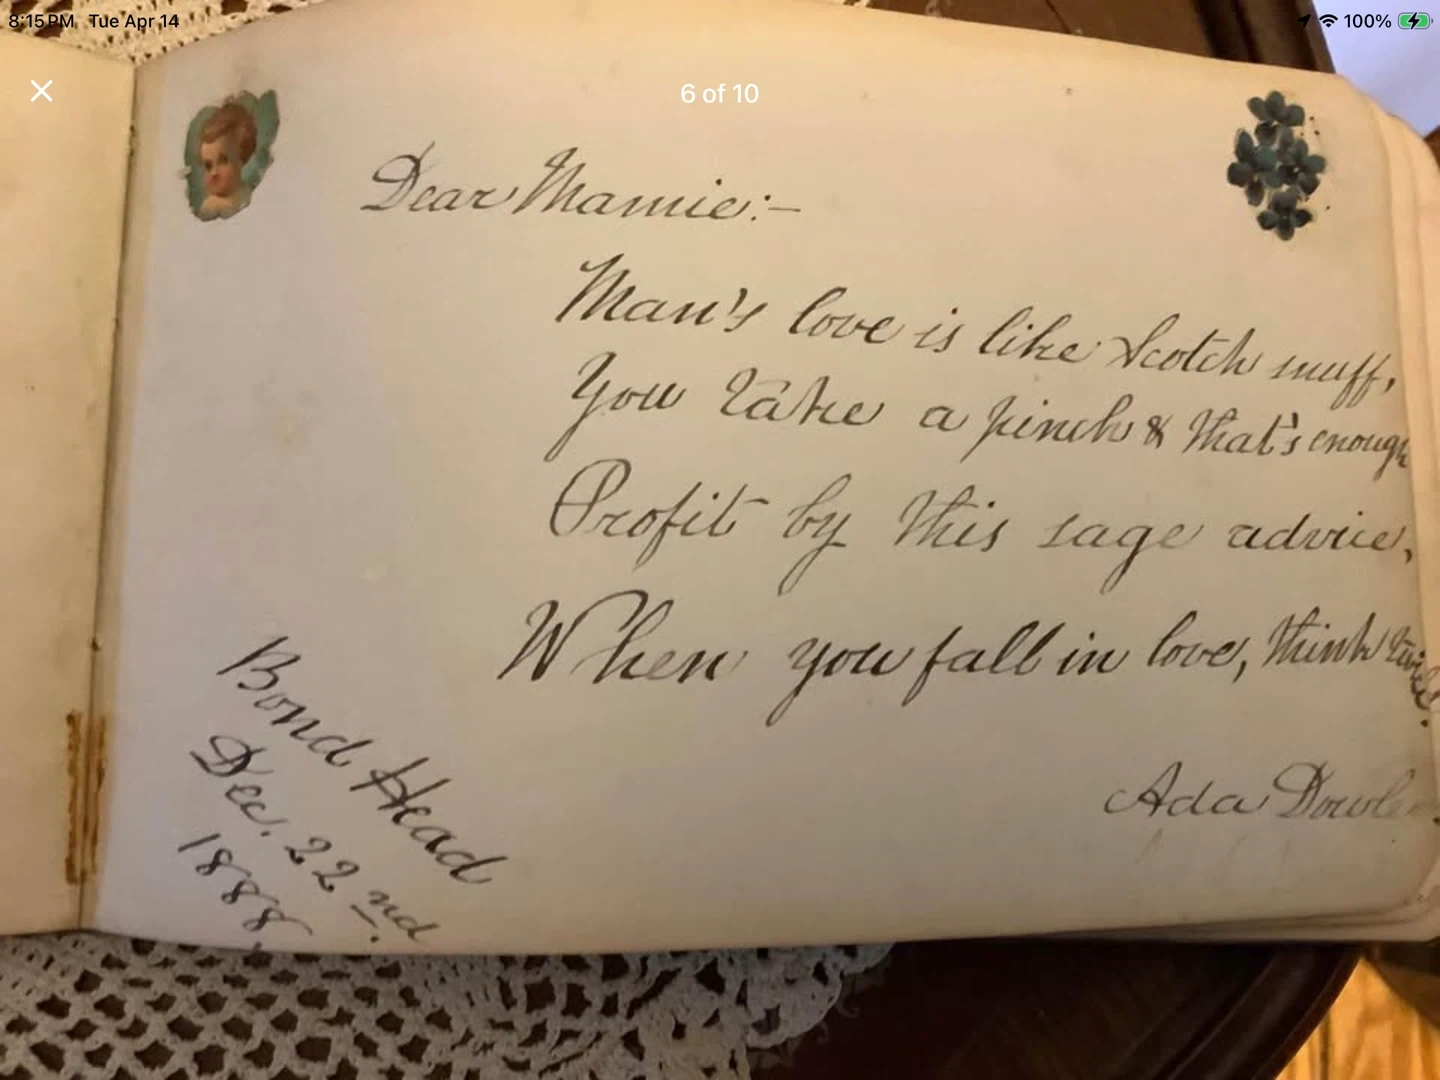 8:15 PM Tue Apr 14
100%
6 of 10
Dear Mamie:-
Man's love is like Scotch snuff,
You take a pinch & that's enough
Profit by this sage advice,
When you fall in love, think twice.
Ada
Bond Head
Dec. 22nd.
1888.